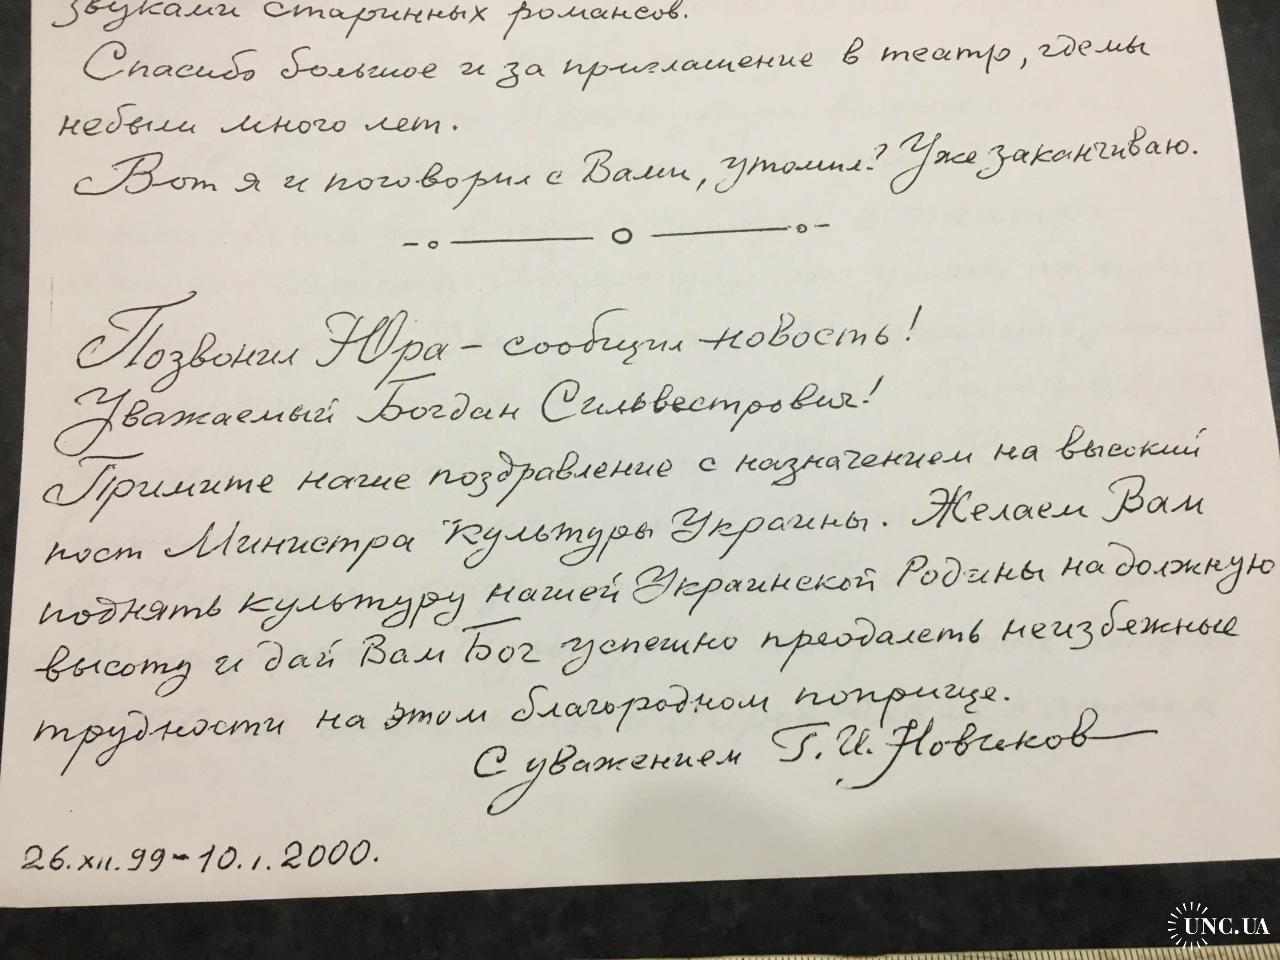 звуками старинных романсов.
Спасибо большое и за приглашение в театр, где мы
не были много лет.
Вот я и поговорил с Вами, утомил? Уже заканчиваю.
Позвонил Юра - сообщил новость!
Уважаемый Богдан Сильвестрович!
Примите наше поздравление с назначением на высокий
пост Министра Культуры Украины. Желаем Вам
поднять культуру нашей Украинской Родины на должную
высоту и дай Вам Бог успешно преодалеть неизбежные
трудности на этом благородном поприще.
С уважением Г.И. Новиков
26.XII.99-10.I.2000.
UNC.UA